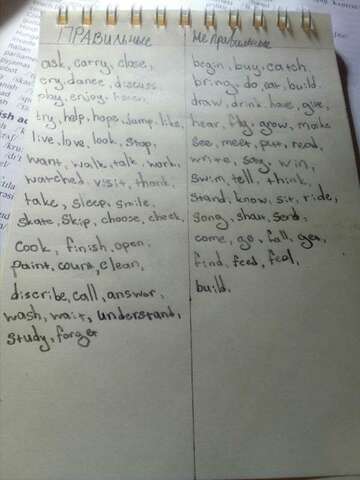 Правильные
ask, carry, close,
cry, dance, discuss
obey, enjoy, listen
try, help, hope, jump, like,
live, love, look, stop,
want, walk, talk, work,
watched, visit, thank,
take, sleep, smile,
skate, skip, choose, check
cook, finish, open,
paint, count, clean,
discribe, call, answer,
wash, wait, understand,
study, forget
Не правильные
begin, buy, catch
bring, do, eat, build
draw, drink, have, give,
hear, fly, grow, make
see, meet, put, read,
write, say, win,
swim, tell, think,
stand, know, sit, ride,
send,
come, go, fall, get,
find, feed, feel,
build.